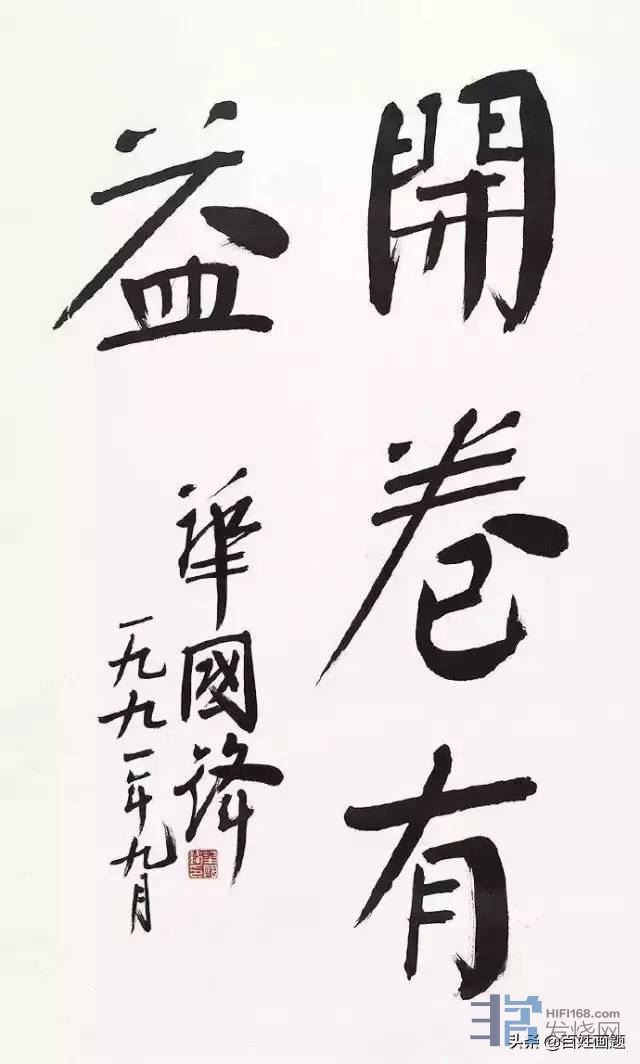 開卷有
益
華國鋒
一九九一年九月
HIFI168.com
发烧网
头条@百姓画题